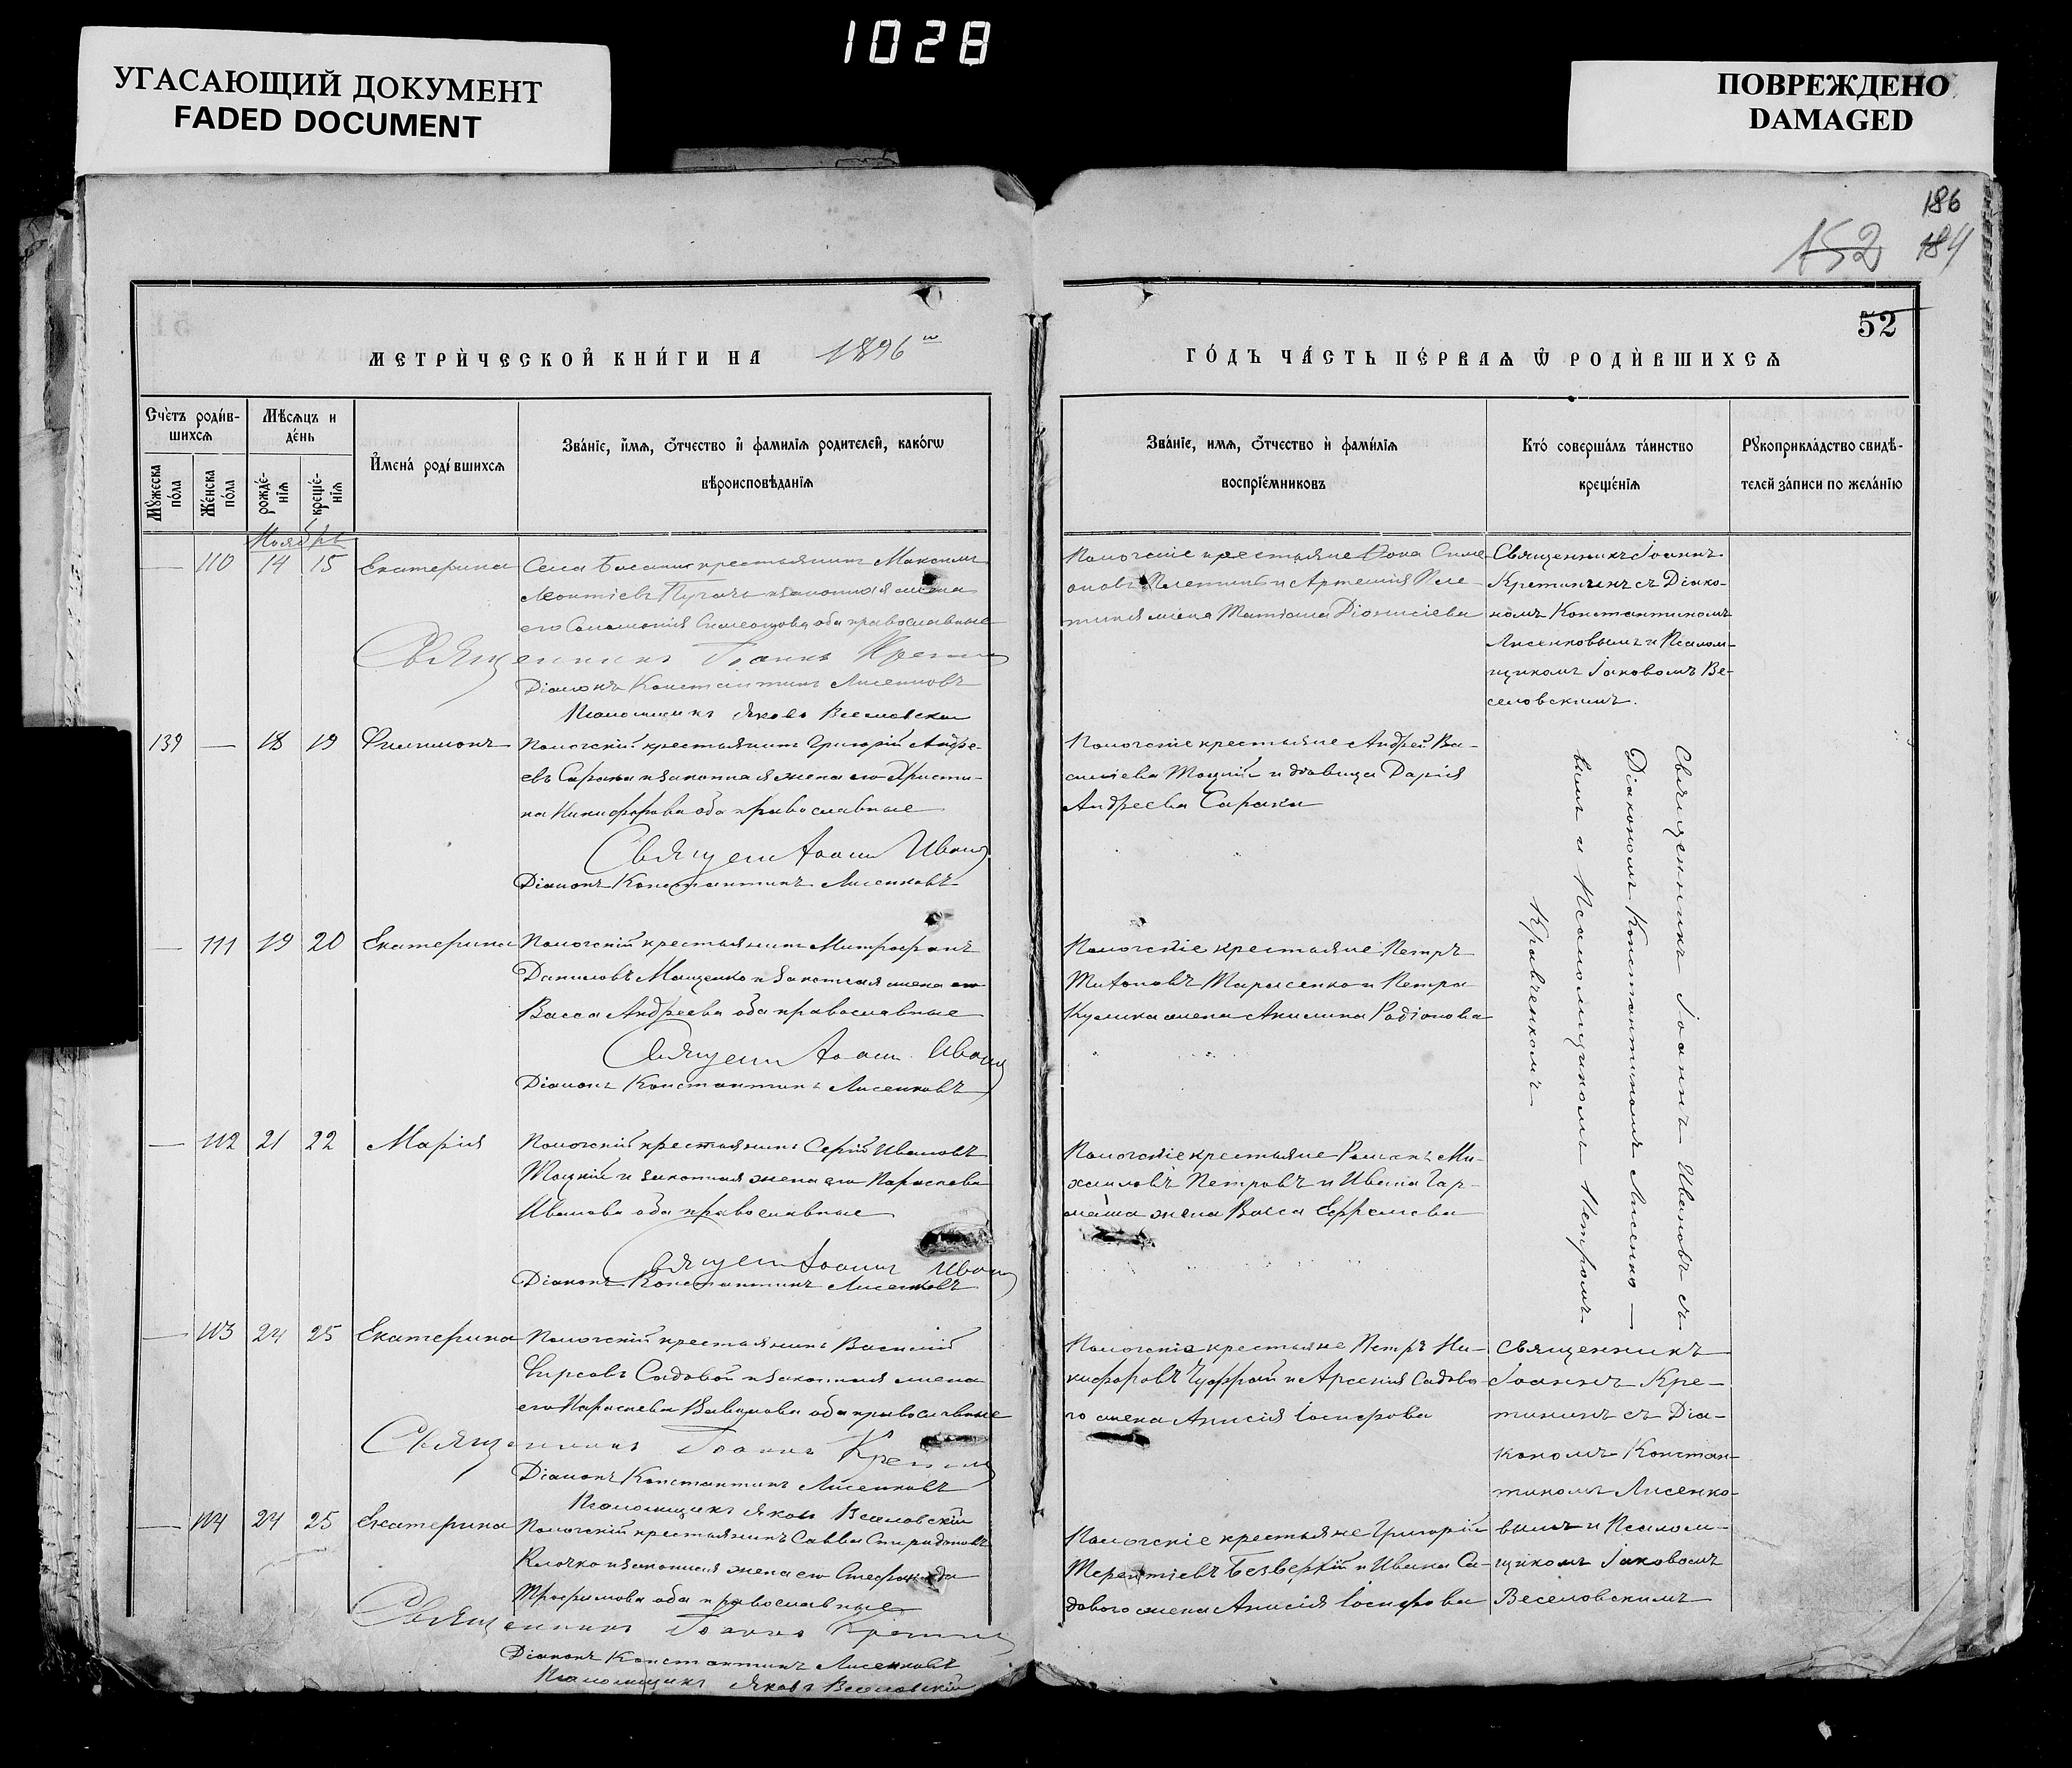 1028
УГАСАЮЩИЙ ДОКУМЕНТ
FADED DOCUMENT
ПОВРЕЖДЕНО
DAMAGED
186
152 184
52
МЕТРИ́ЧЕСКОЙ КНИ́ГИ НА 1896
ГО́ДЪ ЧА́СТЬ ПЕ́РВАѦ Ѿ РОДИ́ВШИХСѦ
Счетъ роди́в-
шихсѧ
Мѣ́сѧцъ и
де́нь
Мꙋ́жеска
по́ла
Же́нска
по́ла
рожде́-
нїѧ
креще́-
нїѧ
И҆мена́ роди́вшихсѧ
Зва́нїе, и҆́мѧ, ѻ҆́тчество и҆ фами́лїѧ родителей, како́гѡ
вѣроисповѣ́данїѧ
Зва́нїе, имѧ, ѻ҆́тчество и҆ фами́лїѧ
воспрїе́мниковъ
Кто́ соверша́лъ та́инство
креще́нїѧ
Рꙋкоприкла́дство свидѣ́-
телей за́писи по жела́нїю
Ноябрь
— 110 14 15 Екатерина
крестьянинъ Максимъ
Леонтіевъ и законная жена
его Соломонія Симеонова оба православные
Священникъ Іоаннъ
Діаконъ Константинъ Лисенковъ
Псаломщикъ Яковъ Веселовскій
крестьяне Симе-
оновъ и Артемія
жена Татіана Діонисіева
Священникъ Іоаннъ
Кретининъ съ Діако-
номъ Константиномъ
Лисенковымъ и Псалом-
щикомъ Іаковомъ Ве-
селовскимъ.
139 — 18 19 Филимонъ
Пологскій крестьянинъ Григорій Андре-
евъ Сарана и законная жена его Христи-
на Никифорова оба православные
Священ Іоаннъ Иванов
Діаконъ Константинъ Лисенковъ
Пологскіе крестьяне Андрей Ва-
силіевъ Тоцкій и дѣвица Дарія
Андреева Сарана
Священникъ Іоаннъ Ивановъ съ
Діакономъ Константиномъ Лисенко —
вымъ и Псаломщикомъ Петромъ
Кравченкомъ
— 111 19 20 Екатерина
Пологскій крестьянинъ Митрофанъ
Даниловъ Мащенко и законная жена его
Васса Андреева оба православные
Священ Іоаннъ Иванов
Діаконъ Константинъ Лисенковъ
Пологскіе крестьяне Петръ
Титоновъ Тарасенко и Петра
Кулика жена Акилина Радіонова
— 112 21 22 Марія
Пологскій крестьянинъ Сергій Ивановъ
Тоцкій и законная жена его Параскева
Иванова оба православные
Священ Іоаннъ Иванов
Діаконъ Константинъ Лисенковъ
Пологскіе крестьяне Романъ Ми-
хаиловъ Петровъ и Ивана Гар-
маша жена Васса Ефремова
— 113 24 25 Екатерина
Пологскій крестьянинъ Василій
Фирсовъ Садовой и законная жена
его Параскева оба православные
Священникъ Іоаннъ
Діаконъ Константинъ Лисенковъ
Псаломщикъ Яковъ Веселовскій
Пологскіе крестьяне Петръ Ни-
кифоровъ и Арсенія Садово-
го жена Анисія Іосифова
Священникъ
Іоаннъ Кре-
тининъ съ Діа-
кономъ Констан-
тиномъ Лисенко-
вымъ и Псалом-
щикомъ Іаковомъ
Веселовскимъ
— 114 24 25 Екатерина
Пологскій крестьянинъ Савва Спиридоновъ
Клочко и законная жена его Стефанида
Трофимова оба православные
Священникъ Іоаннъ
Діаконъ Константинъ Лисенковъ
Псаломщикъ Яковъ Веселовскій
Пологскіе крестьяне Григорій
Терентіевъ Безверхій и Ивана Са-
доваго жена Анисія Іосифова